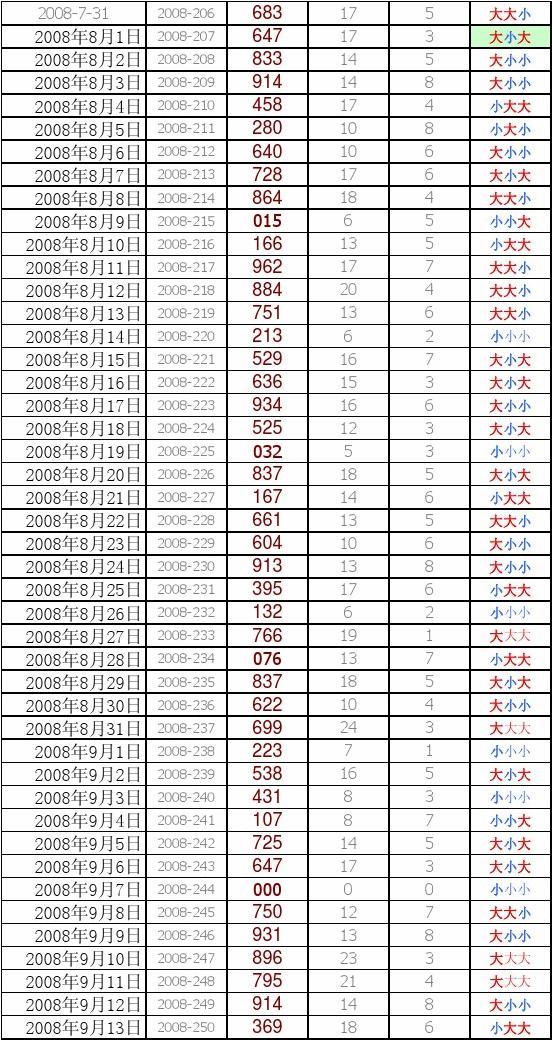 2008-7-31 2008-206 683 17 5 大大小
2008年8月1日 2008-207 647 17 3 大小大
2008年8月2日 2008-208 833 14 5 大小小
2008年8月3日 2008-209 914 14 8 大小小
2008年8月4日 2008-210 458 17 4 小大大
2008年8月5日 2008-211 280 10 8 小大小
2008年8月6日 2008-212 640 10 6 大小小
2008年8月7日 2008-213 728 17 6 大小大
2008年8月8日 2008-214 864 18 4 大大小
2008年8月9日 2008-215 015 6 5 小小大
2008年8月10日 2008-216 166 13 5 小大大
2008年8月11日 2008-217 962 17 7 大大小
2008年8月12日 2008-218 884 20 4 大大小
2008年8月13日 2008-219 751 13 6 大大小
2008年8月14日 2008-220 213 6 2 小小小
2008年8月15日 2008-221 529 16 7 大小大
2008年8月16日 2008-222 636 15 3 大小大
2008年8月17日 2008-223 934 16 6 大小小
2008年8月18日 2008-224 525 12 3 大小大
2008年8月19日 2008-225 032 5 3 小小小
2008年8月20日 2008-226 837 18 5 大小大
2008年8月21日 2008-227 167 14 6 小大大
2008年8月22日 2008-228 661 13 5 大大小
2008年8月23日 2008-229 604 10 6 大小小
2008年8月24日 2008-230 913 13 8 大小小
2008年8月25日 2008-231 395 17 6 小大大
2008年8月26日 2008-232 132 6 2 小小小
2008年8月27日 2008-233 766 19 1 大大大
2008年8月28日 2008-234 076 13 7 小大大
2008年8月29日 2008-235 837 18 5 大小大
2008年8月30日 2008-236 622 10 4 大小小
2008年8月31日 2008-237 699 24 3 大大大
2008年9月1日 2008-238 223 7 1 小小小
2008年9月2日 2008-239 538 16 5 大小大
2008年9月3日 2008-240 431 8 3 小小小
2008年9月4日 2008-241 107 8 7 小小大
2008年9月5日 2008-242 725 14 5 大小大
2008年9月6日 2008-243 647 17 3 大小大
2008年9月7日 2008-244 000 0 0 小小小
2008年9月8日 2008-245 750 12 7 大大小
2008年9月9日 2008-246 931 13 8 大小小
2008年9月10日 2008-247 896 23 3 大大大
2008年9月11日 2008-248 795 21 4 大大大
2008年9月12日 2008-249 914 14 8 大小小
2008年9月13日 2008-250 369 18 6 小大大